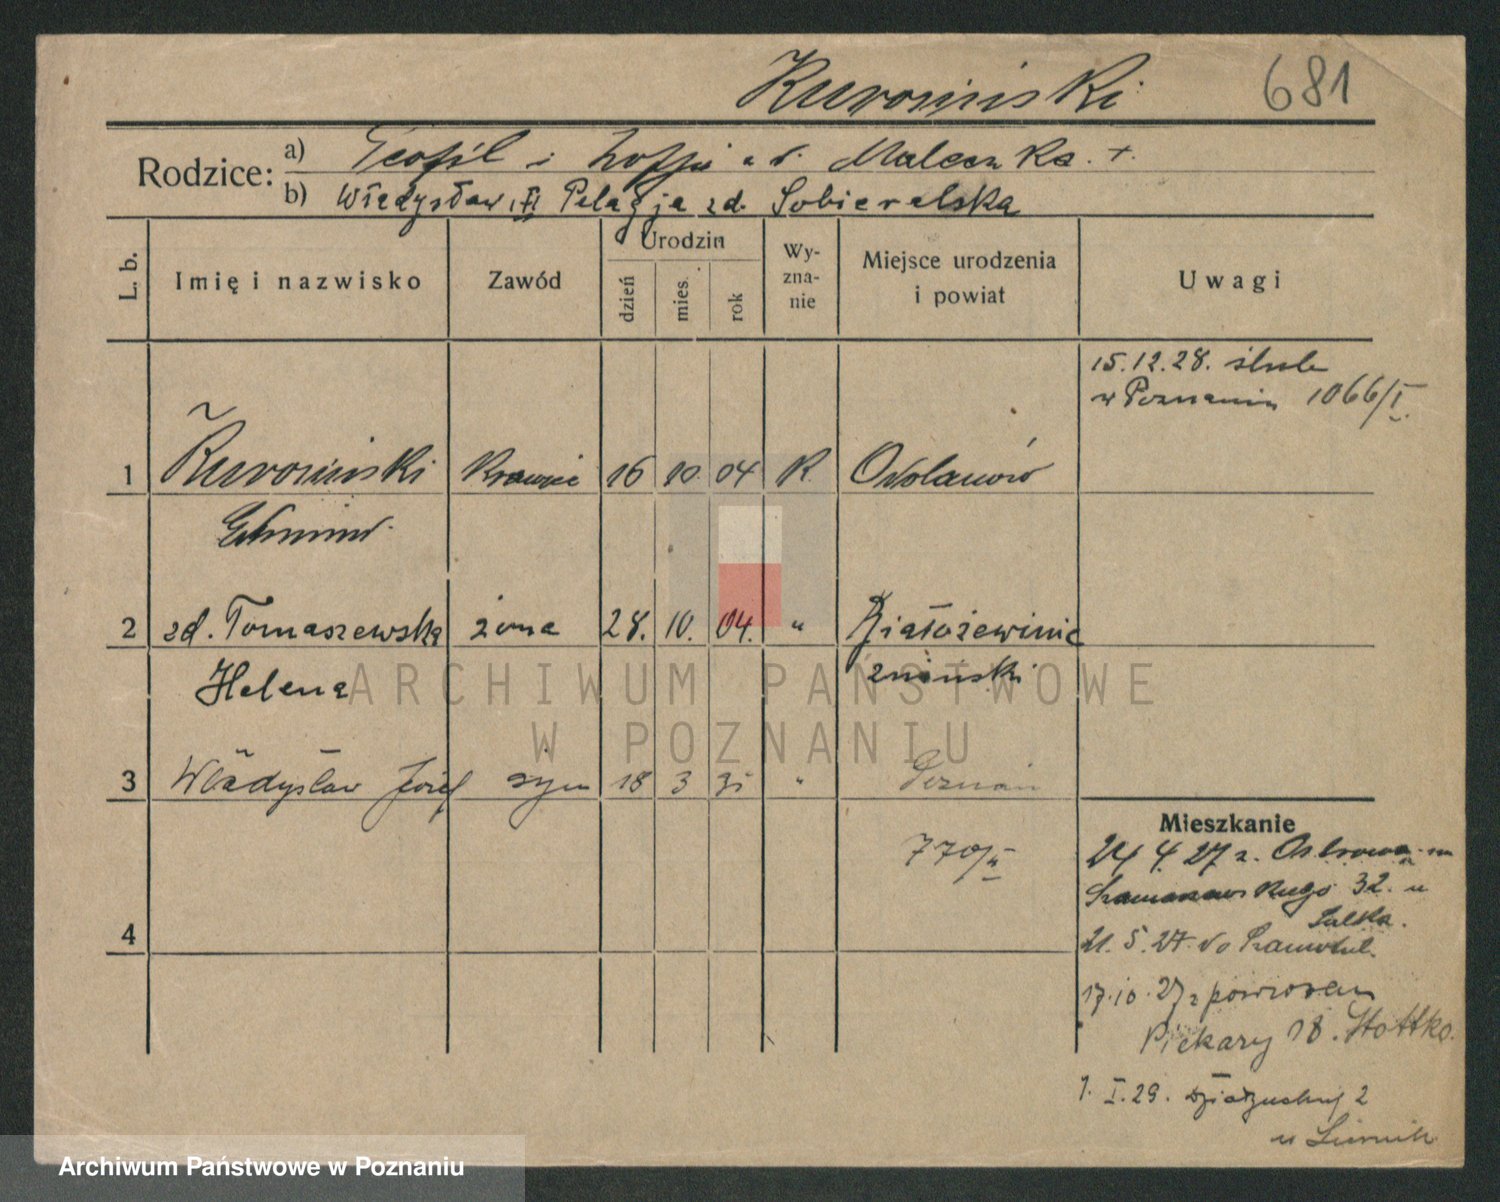 Kurosiński 681
Rodzice: a) Teofil i Zofja z d. Maleszka. +.
b) Władysław, i Pelagja zd. Sobieralska
L. b. Imię i nazwisko Zawód Urodzin dzień mies. rok Wyznanie Miejsce urodzenia i powiat Uwagi
15.12.28. ślub
w Poznaniu 1066/I.
1 Kurosiński Krawiec 16 10. 04 R. Odolanów
Edmund.
2 zd. Tomaszewska żona 28. 10. 04. " Białożewinie
Helena żniński
3 Władysław Józef syn 18 3 31 " Poznań
Mieszkanie
770/II
24 4. 27 z. Ostrowa
32. u
4
21. 5. 27 do Szamotuł.
17.10.27 z powrotem
Piekary 18.
1. I.29. Działyńskich 2
u
ARCHIWUM PAŃSTWOWE
W POZNANIU
Archiwum Państwowe w Poznaniu